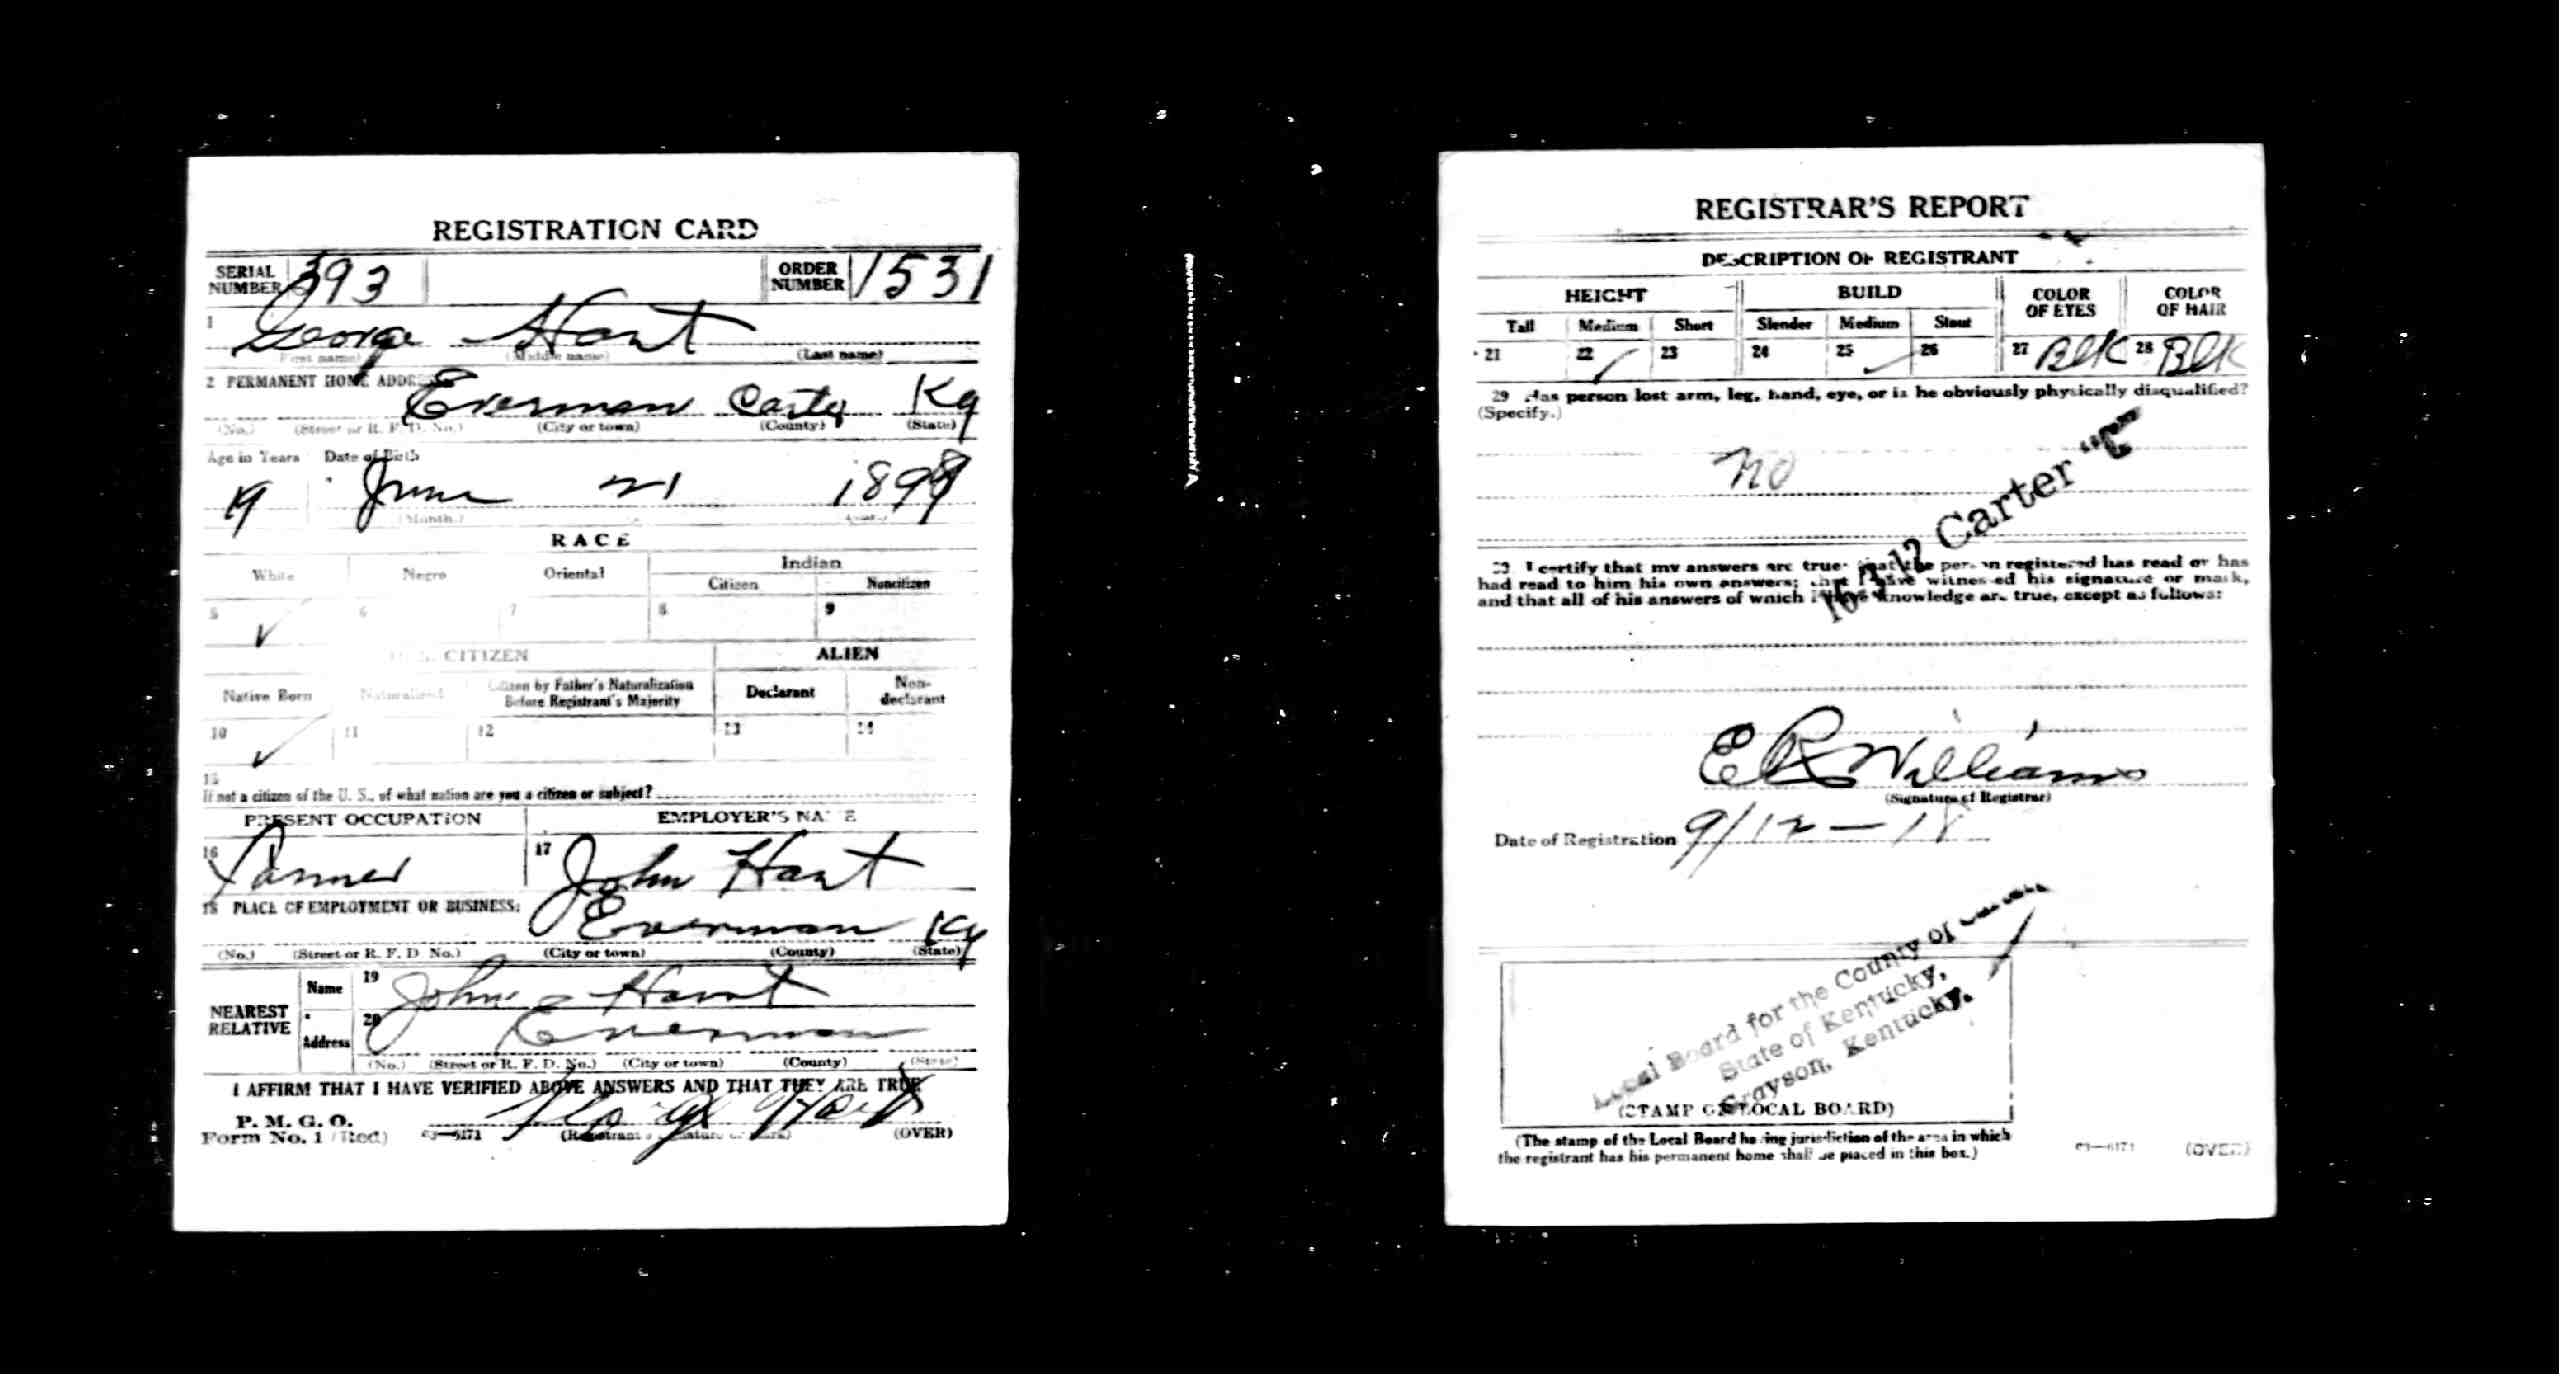 REGISTRATION CARD
SERIAL NUMBER 393 ORDER NUMBER 1531
1 George Hart
(First name) (Middle name) (Last name)
2 PERMANENT HOME ADDRESS
Everman Carter Ky
(No.) (Street or R. F. D. No.) (City or town) (County) (State)
Age in Years Date of Birth
19 June 21
(Month.)
RACE
White Negro Oriental Indian
Citizen Noncitizen
5 ✓ 6 7 8 9
U. S. CITIZEN ALIEN
Native Born Naturalized Citizen by Father's Naturalization Before Registrant's Majority Declarant Non-declarant
10 ✓ 11 12 13 14
15
If not a citizen of the U. S., of what nation are you a citizen or subject?
PRESENT OCCUPATION EMPLOYER'S NAME
16 Farmer 17 John Hart
18 PLACE OF EMPLOYMENT OR BUSINESS:
Everman Ky
(No.) (Street or R. F. D. No.) (City or town) (County) (State)
NEAREST RELATIVE Name 19 John Hart
Address 20 Everman
(No.) (Street or R. F. D. No.) (City or town) (County) (State)
I AFFIRM THAT I HAVE VERIFIED ABOVE ANSWERS AND THAT THEY ARE TRUE
P. M. G. O.
Form No. 1 (Red) 03—6171 George Hart (Registrant's signature or mark) (OVER)
REGISTRAR'S REPORT
DESCRIPTION OF REGISTRANT
HEIGHT BUILD COLOR OF EYES COLOR OF HAIR
Tall Medium Short Slender Medium Stout
21 22 ✓ 23 24 25 ✓ 26 27 Blk 28 Blk
29 Has person lost arm, leg, hand, eye, or is he obviously physically disqualified?
(Specify.)
no
16-3-12 Carter "C"
30 I certify that my answers are true; that the person registered has read or has
had read to him his own answers; that I have witnessed his signature or mark,
and that all of his answers of which I have knowledge are true, except as follows:
E R Williams
(Signature of Registrar)
Date of Registration 9/12—18
Local Board for the County of Carter
State of Kentucky,
Grayson, Kentucky.
(STAMP OF LOCAL BOARD)
(The stamp of the Local Board having jurisdiction of the area in which
the registrant has his permanent home shall be placed in this box.)
03—6171 (OVER)